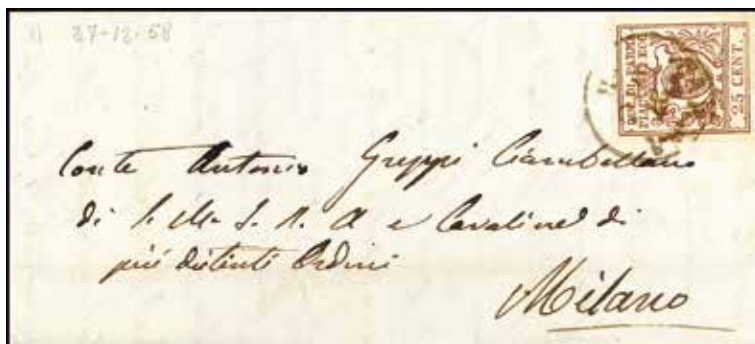 27-12-58
25 CENT.
Conte Antonio Greppi Ciambellano
di S. M. I. R. A e Cavaliere di
più distinti Ordini
Milano